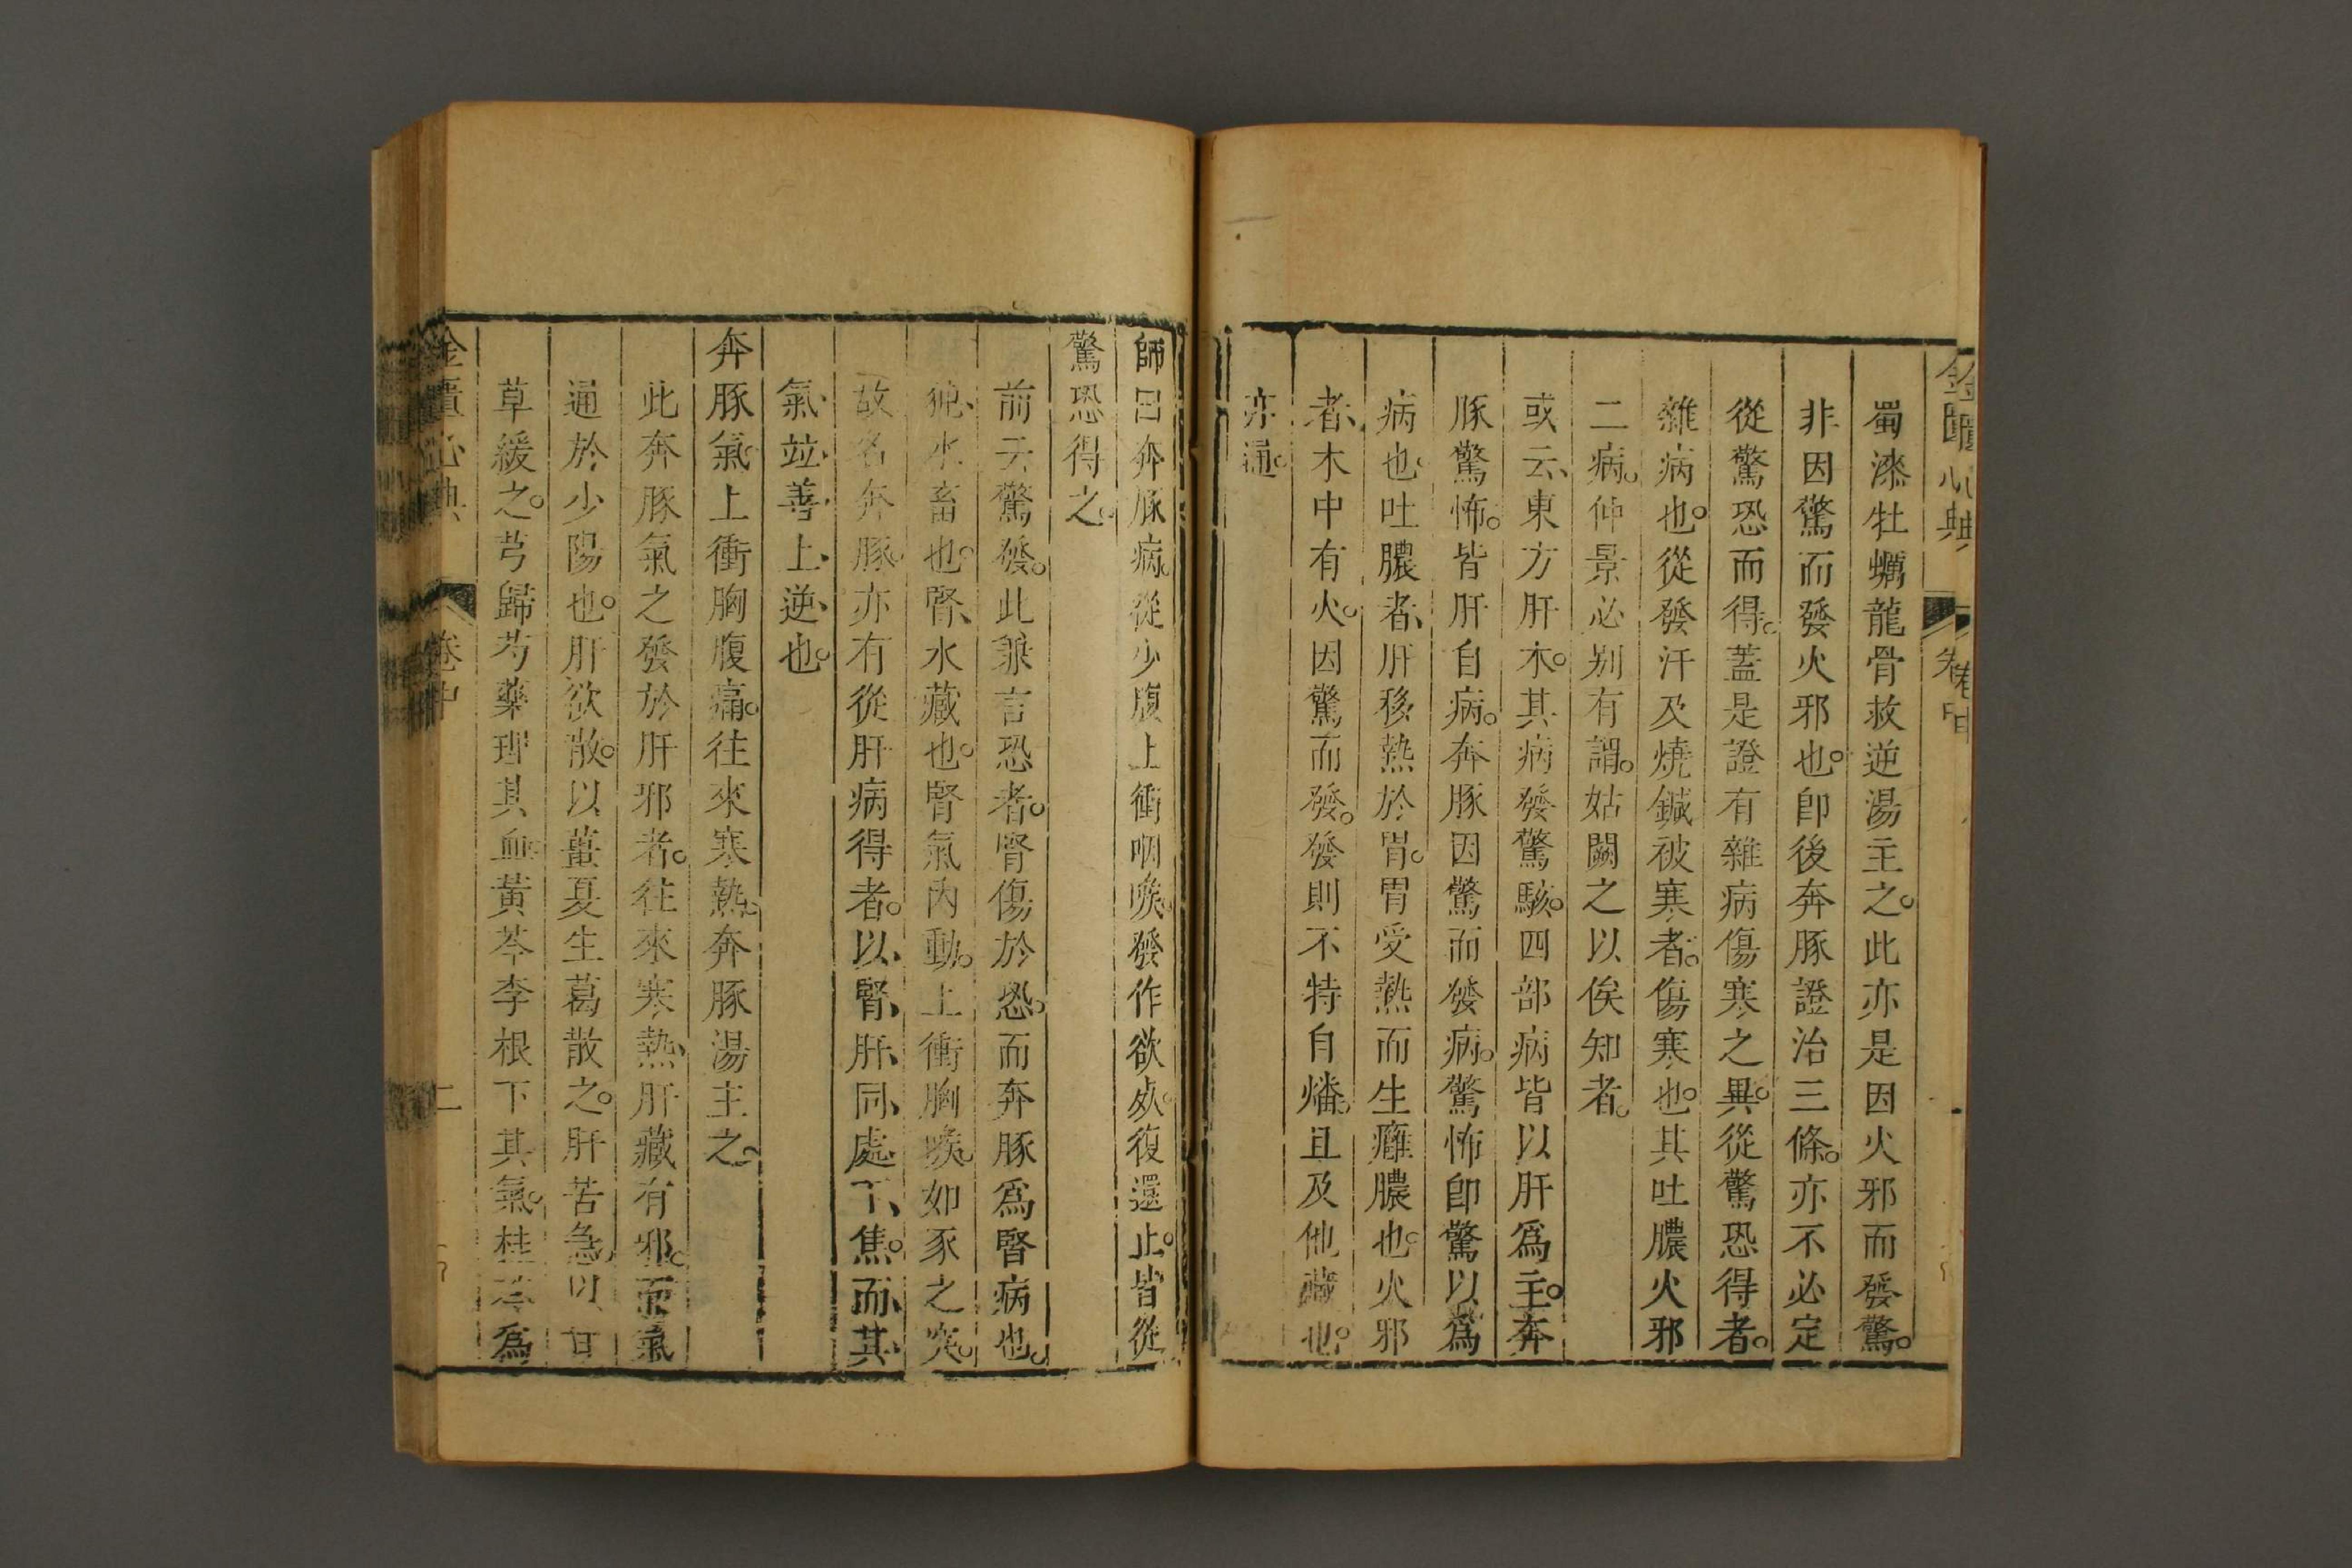 金匱心典
卷中
蜀漆牡蠣龍骨救逆湯主之。此亦是因火邪而發驚。
非因驚而發火邪也。卽後奔豚證治三條。亦不必定
從驚恐而得。蓋是證有雜病傷寒之異。從驚恐得者。
雜病也。從發汗及燒鍼被寒者。傷寒也。其吐膿火邪
二病。仲景必别有謂。姑闕之以俟知者。
或云、東方肝木。其病發驚駭。四部病皆以肝爲主。奔
豚驚怖。皆肝自病。奔豚因驚而發病。驚怖卽驚以爲
病也。吐膿者、肝移熱於胃。胃受熱而生癰膿也。火邪
者、木中有火。因驚而發。發則不特自燔。且及他藏也。
亦通。
師曰奔豚病。從少腹上衝咽喉。發作欲死。復還止。皆從
驚恐得之。
前云驚發。此兼言恐者。腎傷於恐。而奔豚爲腎病也。
豕、水畜也。腎、水藏也。腎氣內動。上衝胸喉。如豕之突。
故名奔豚。亦有從肝病得者。以、腎、肝、同、處、下、焦。而、其、
氣、竝、善、上、逆、也。
奔豚氣上衝胸腹痛。往來寒熱。奔豚湯主之。
此奔豚氣之發於肝邪者。往來寒熱、肝藏有邪。而氣
通於少陽也。肝欲散。以薑夏生葛散之。肝苦急、以甘
草緩之。芎歸芍藥理其血。黃芩李根下其氣。桂苓爲
金匱心典
卷中
二